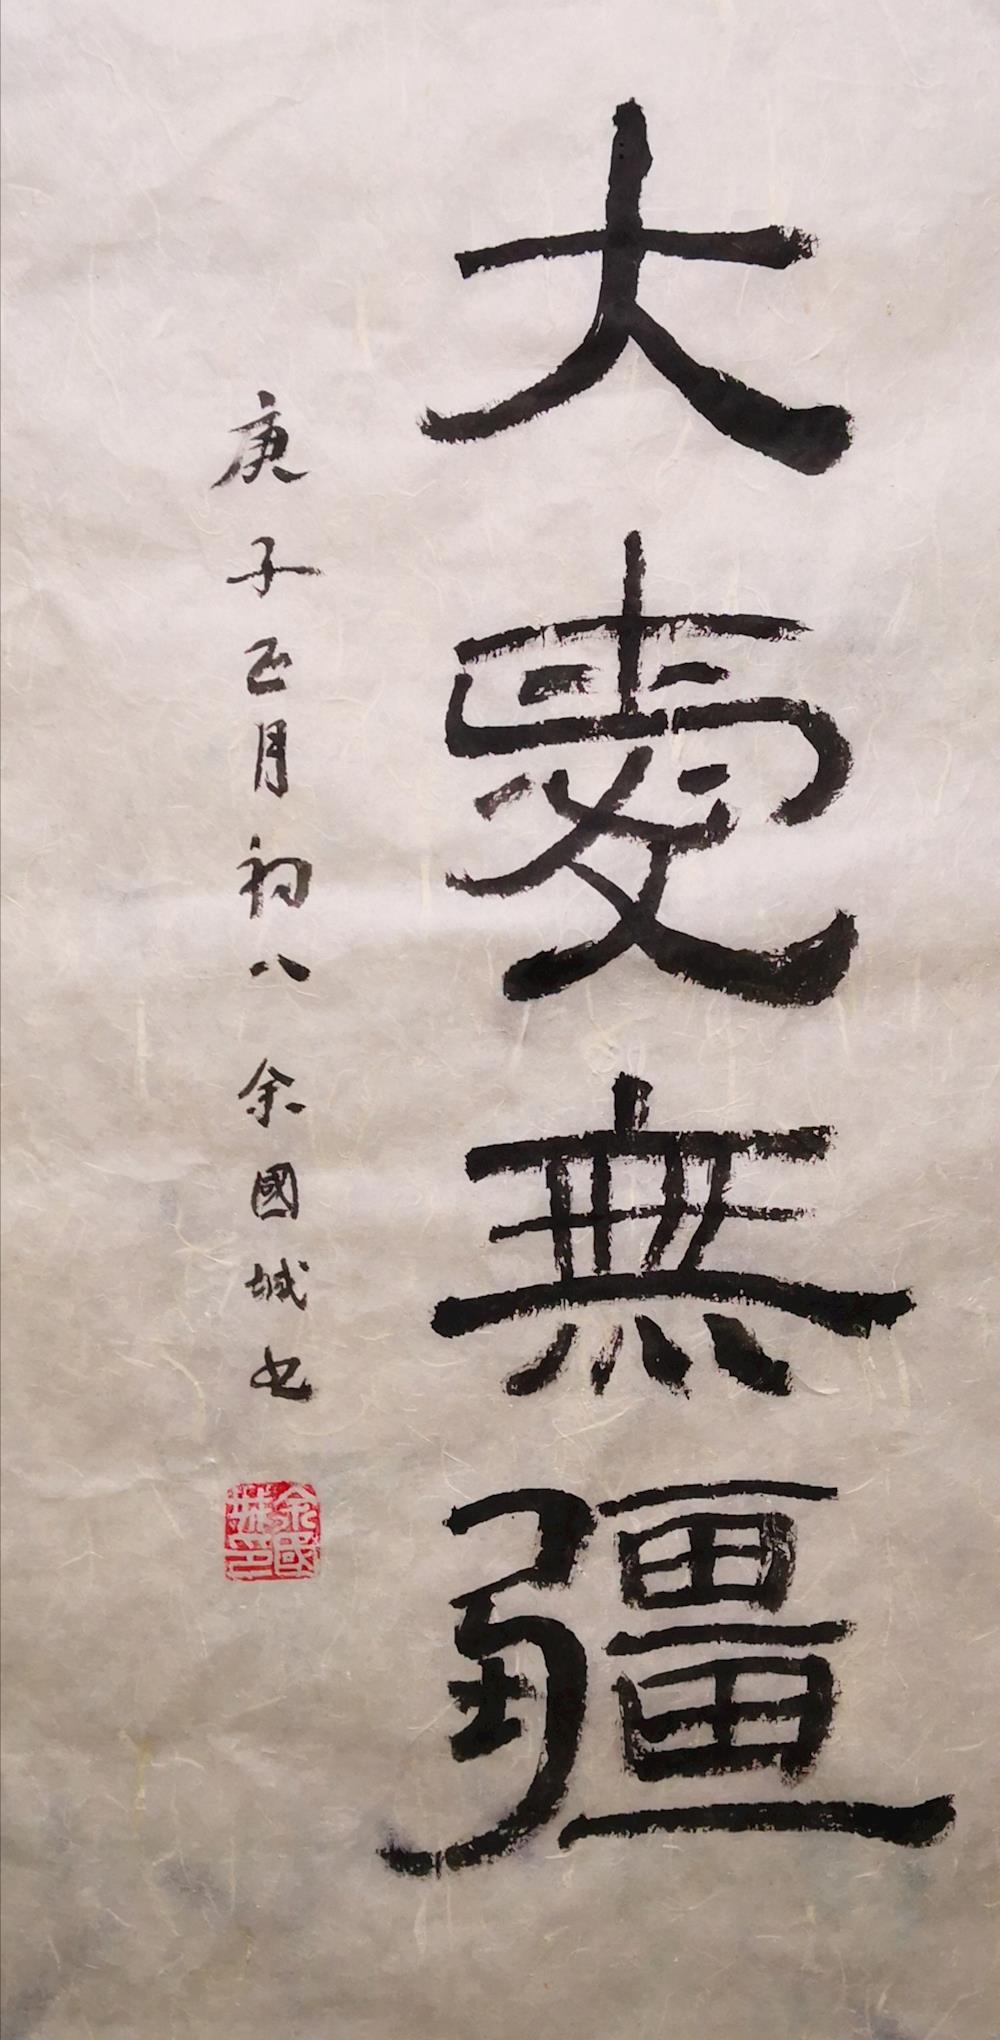 大愛無疆
庚子正月初八 余國城书
余國城印